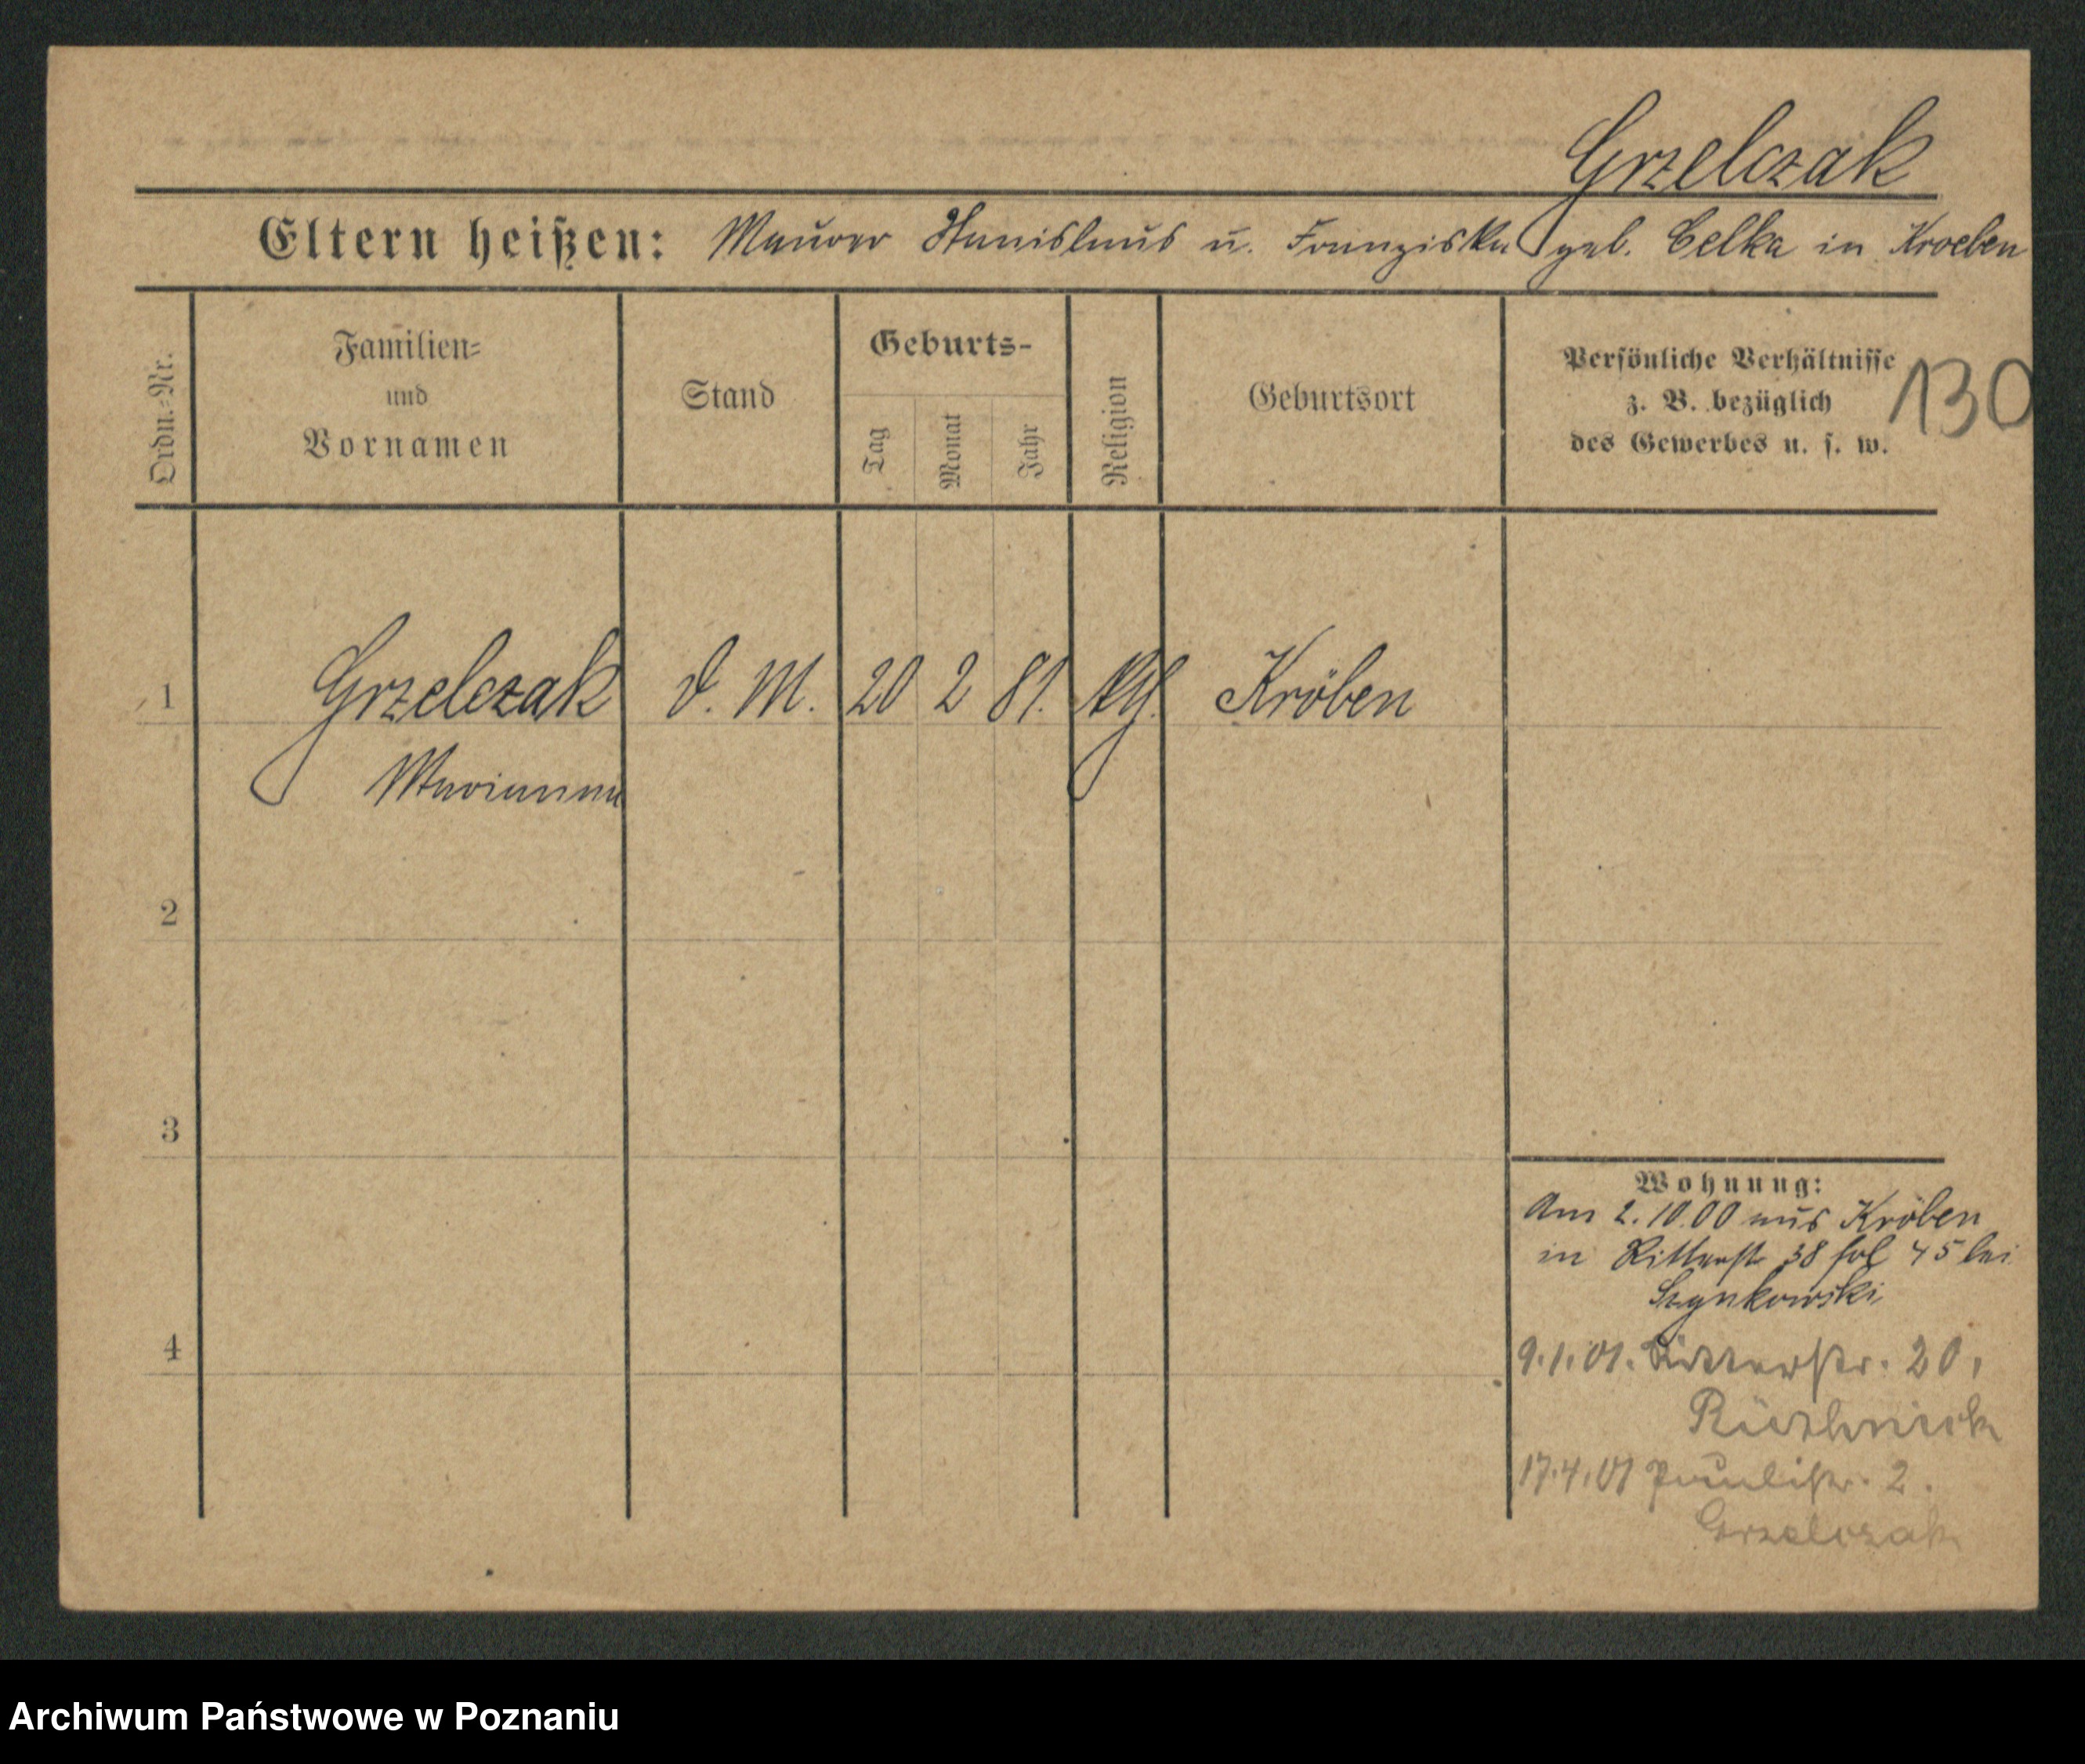 Grzelczak
Eltern heißen: Maurer Stanislaus u. Franziska geb. Celka in Kroeben
Ordn.-Nr.
Familien-
und
Vornamen
Stand
Geburts-
Tag
Monat
Jahr
Religion
Geburtsort
Persönliche Verhältnisse
z. B. bezüglich
des Gewerbes u. s. w.
130
1 Grzelczak d. M. 20 2 81. Kröben
Marianna
2
3
4
Wohnung:
Am 2.10.00 aus Kröben
in Ritterstr 38 fol 45 bei
Szynkowski
9.1.01. Ritterstr. 20,
17.4.01 Paulistr. 2.
Grzelczak
Archiwum Państwowe w Poznaniu